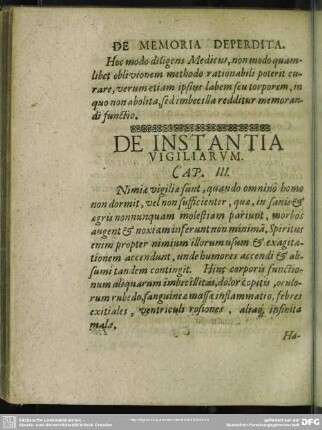 DE MEMORIA DEPERDITA.
Hoc modo diligens Medicus, non modo quam-
libet oblivionem methodo rationabili poterit cu-
rare, verum etiam ipsius labem seu torporem, in
quo non abolita, sed imbecilla redditur memoran-
di functio.
DE INSTANTIA
VIGILIARVM.
CAP. III.
Nimiæ vigiliæ sunt, quando omninò homo
non dormit, vel non sufficienter, quæ, in sanis &
ægris nonnunquam molestiam pariunt, morbos
augent & noxiam inferunt non minimã, Spiritus
enim propter nimium illorum usum & exagita-
tionem accendunt, unde humores accendi & ab-
sumi tandem contingit. Hinc corporis functio-
num aliquarum imbecillitas, dolor capitis, oculo-
rum rubedo, sanguineæ massæ inflammatio, febres
exitiales, ventriculi rosiones, aliaq; infinita
mala.
Ha-
SLUB
Sächsische Landesbibliothek -
Staats- und Universitätsbibliothek Dresden
gefördert von der
Deutschen Forschungsgemeinschaft
DFG